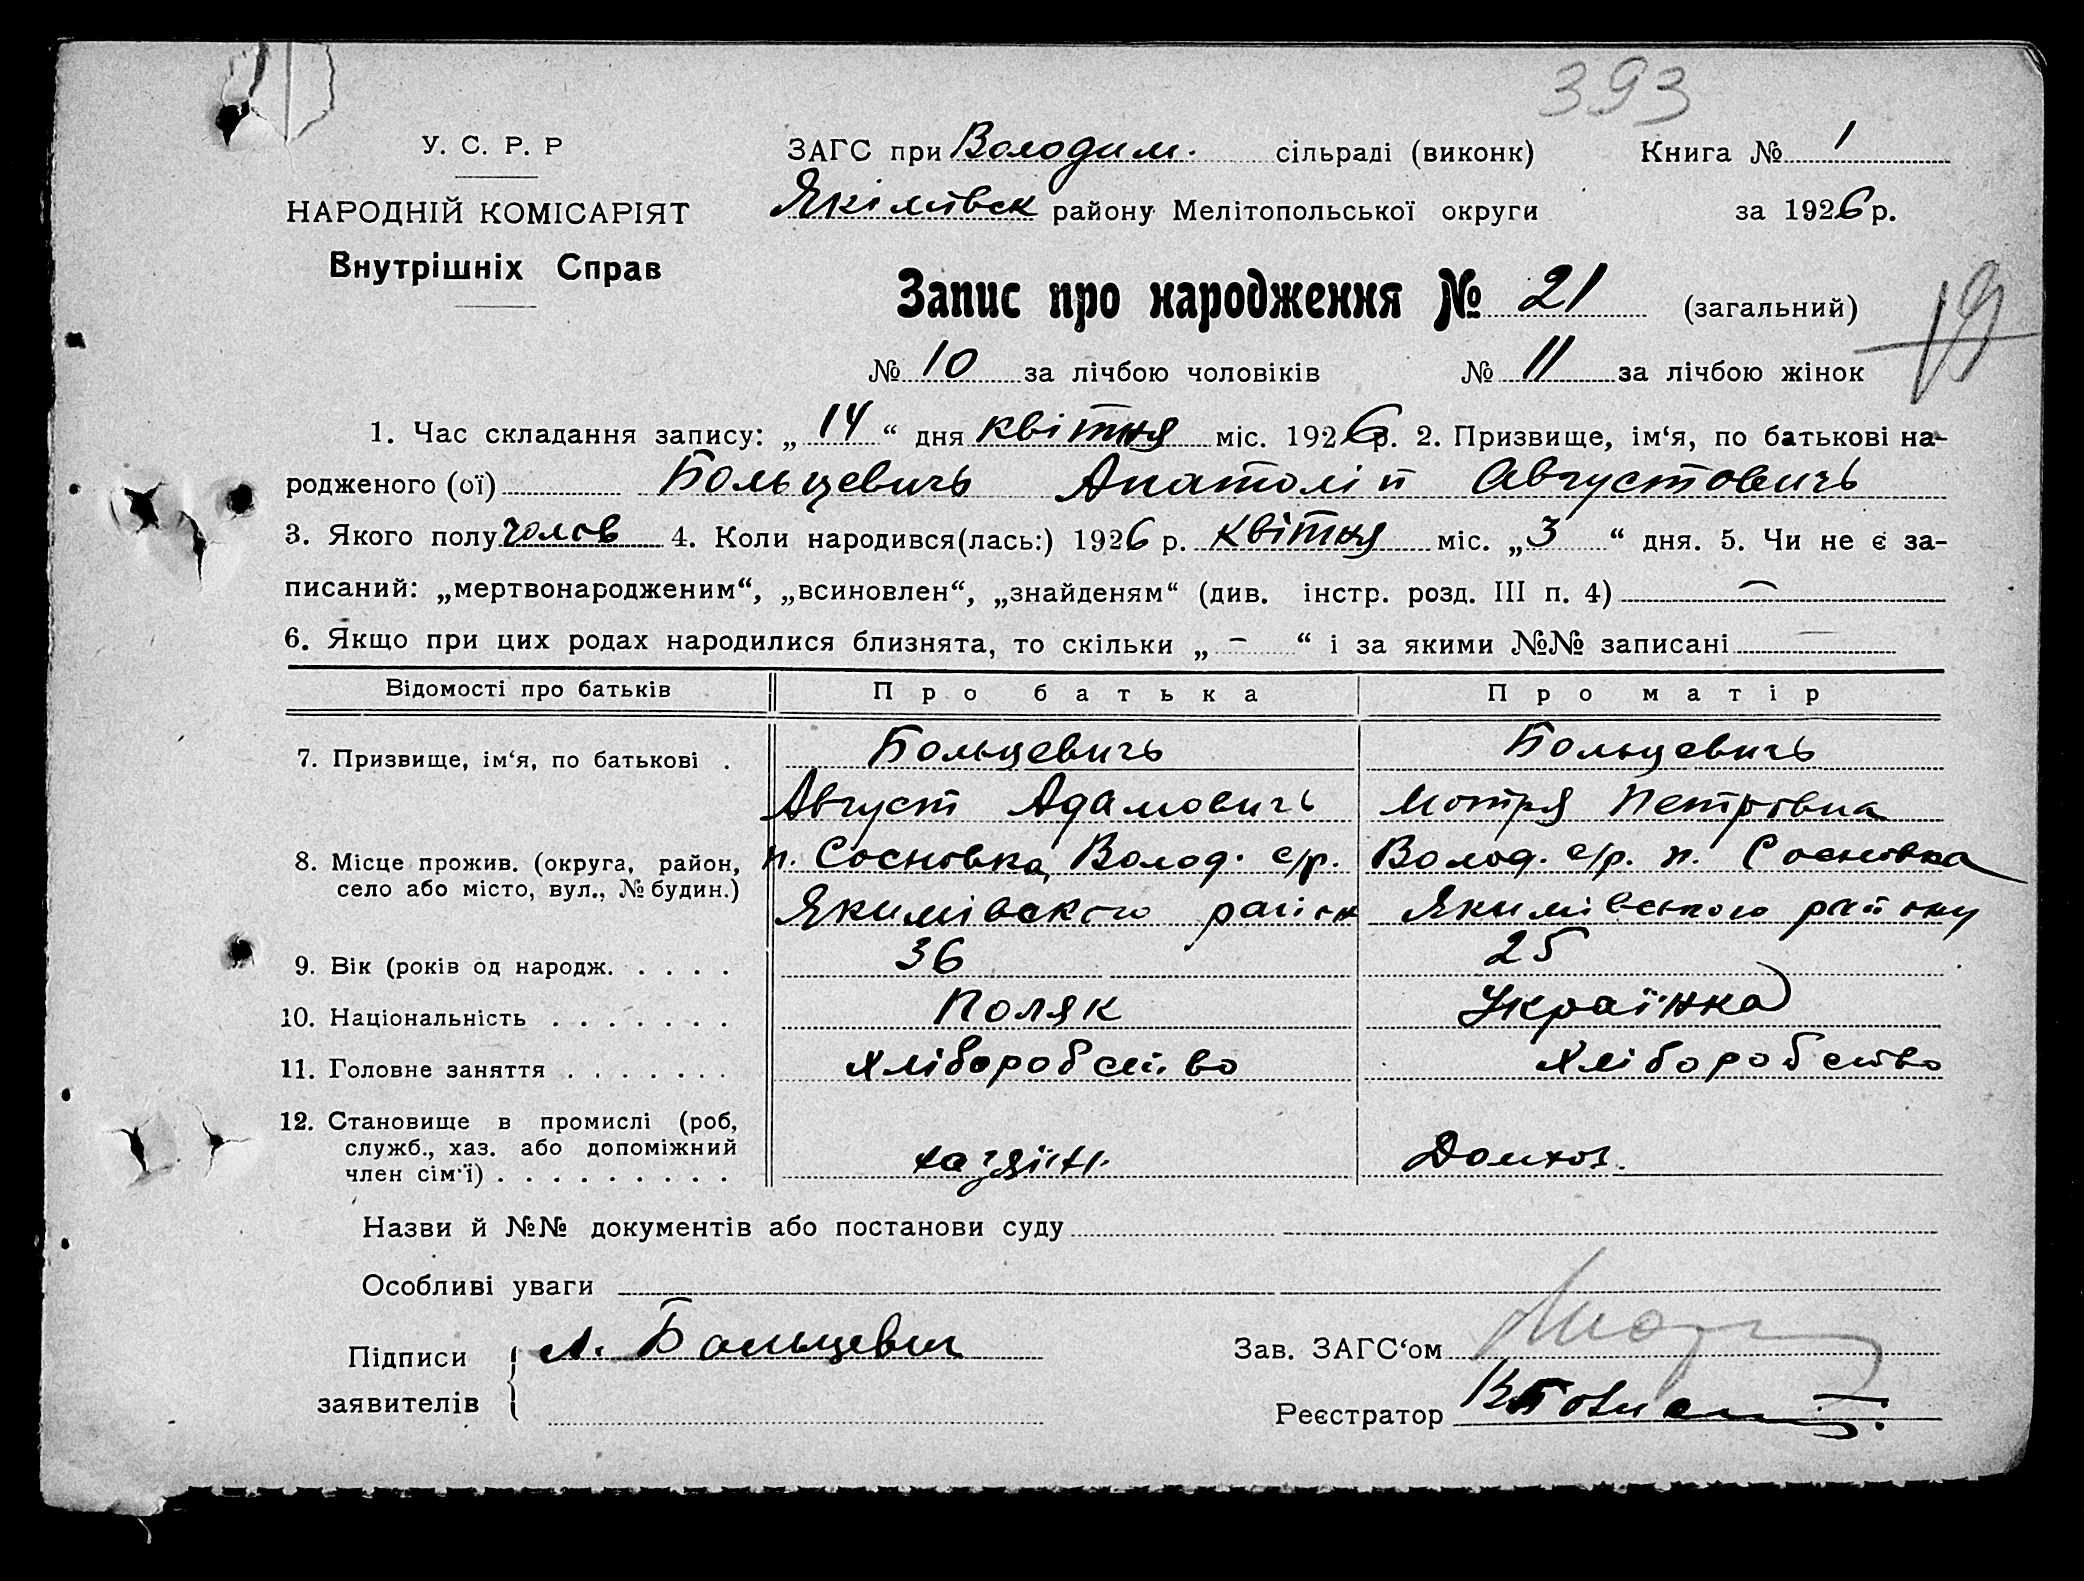 393
У. С. Р. Р
НАРОДНІЙ КОМІСАРІЯТ
Внутрішніх Справ
ЗАГС при Володим. сільраді (виконк) Книга № 1
Якімівск району Мелітопольської округи за 1926 р.
Запис про народження № 21 (загальний)
19
№ 10 за лічбою чоловіків № 11 за лічбою жінок
1. Час складання запису: „ 14 “ дня квітня міс. 1926 р. 2. Призвище, ім‘я, по батькові на-
родженого (ої) Больцевичь Анатолій Августовичь
3. Якого полу чолов 4. Коли народився(лась:) 1926 р. квітня міс. „ 3 “ дня. 5. Чи не є за-
писаний: „мертвонародженим“, „всиновлен“, „знайденям“ (див. інстр. розд. III п. 4) —
6. Якщо при цих родах народилися близнята, то скільки „ – “ і за якими №№ записані —
Відомості про батьків Про батька Про матір
7. Призвище, ім‘я, по батькові . Больцевичь Больцевичь
Август Адамовичь Мотря Петрівна
8. Місце прожив. (округа, район, п. Сосновка, Волод. с/р. Волод. с/р. п. Сосновка
село або місто, вул., № будин.) Якимівского район Якимівського району
9. Вік (років од народж. . . . . 36 25
10. Національність . . . . . . . Поляк Українка
11. Головне заняття . . . . . . . Хліборобство Хліборобство
12. Становище в промислі (роб,
служб., хаз. або допоміжний
член сім‘ї) . . . . . . . . . хазяїн. Домхоз.
Назви й №№ документів або постанови суду
Особливі уваги
Підписи А. Больцевич Зав. ЗАГС‘ом
заявителів Реєстратор